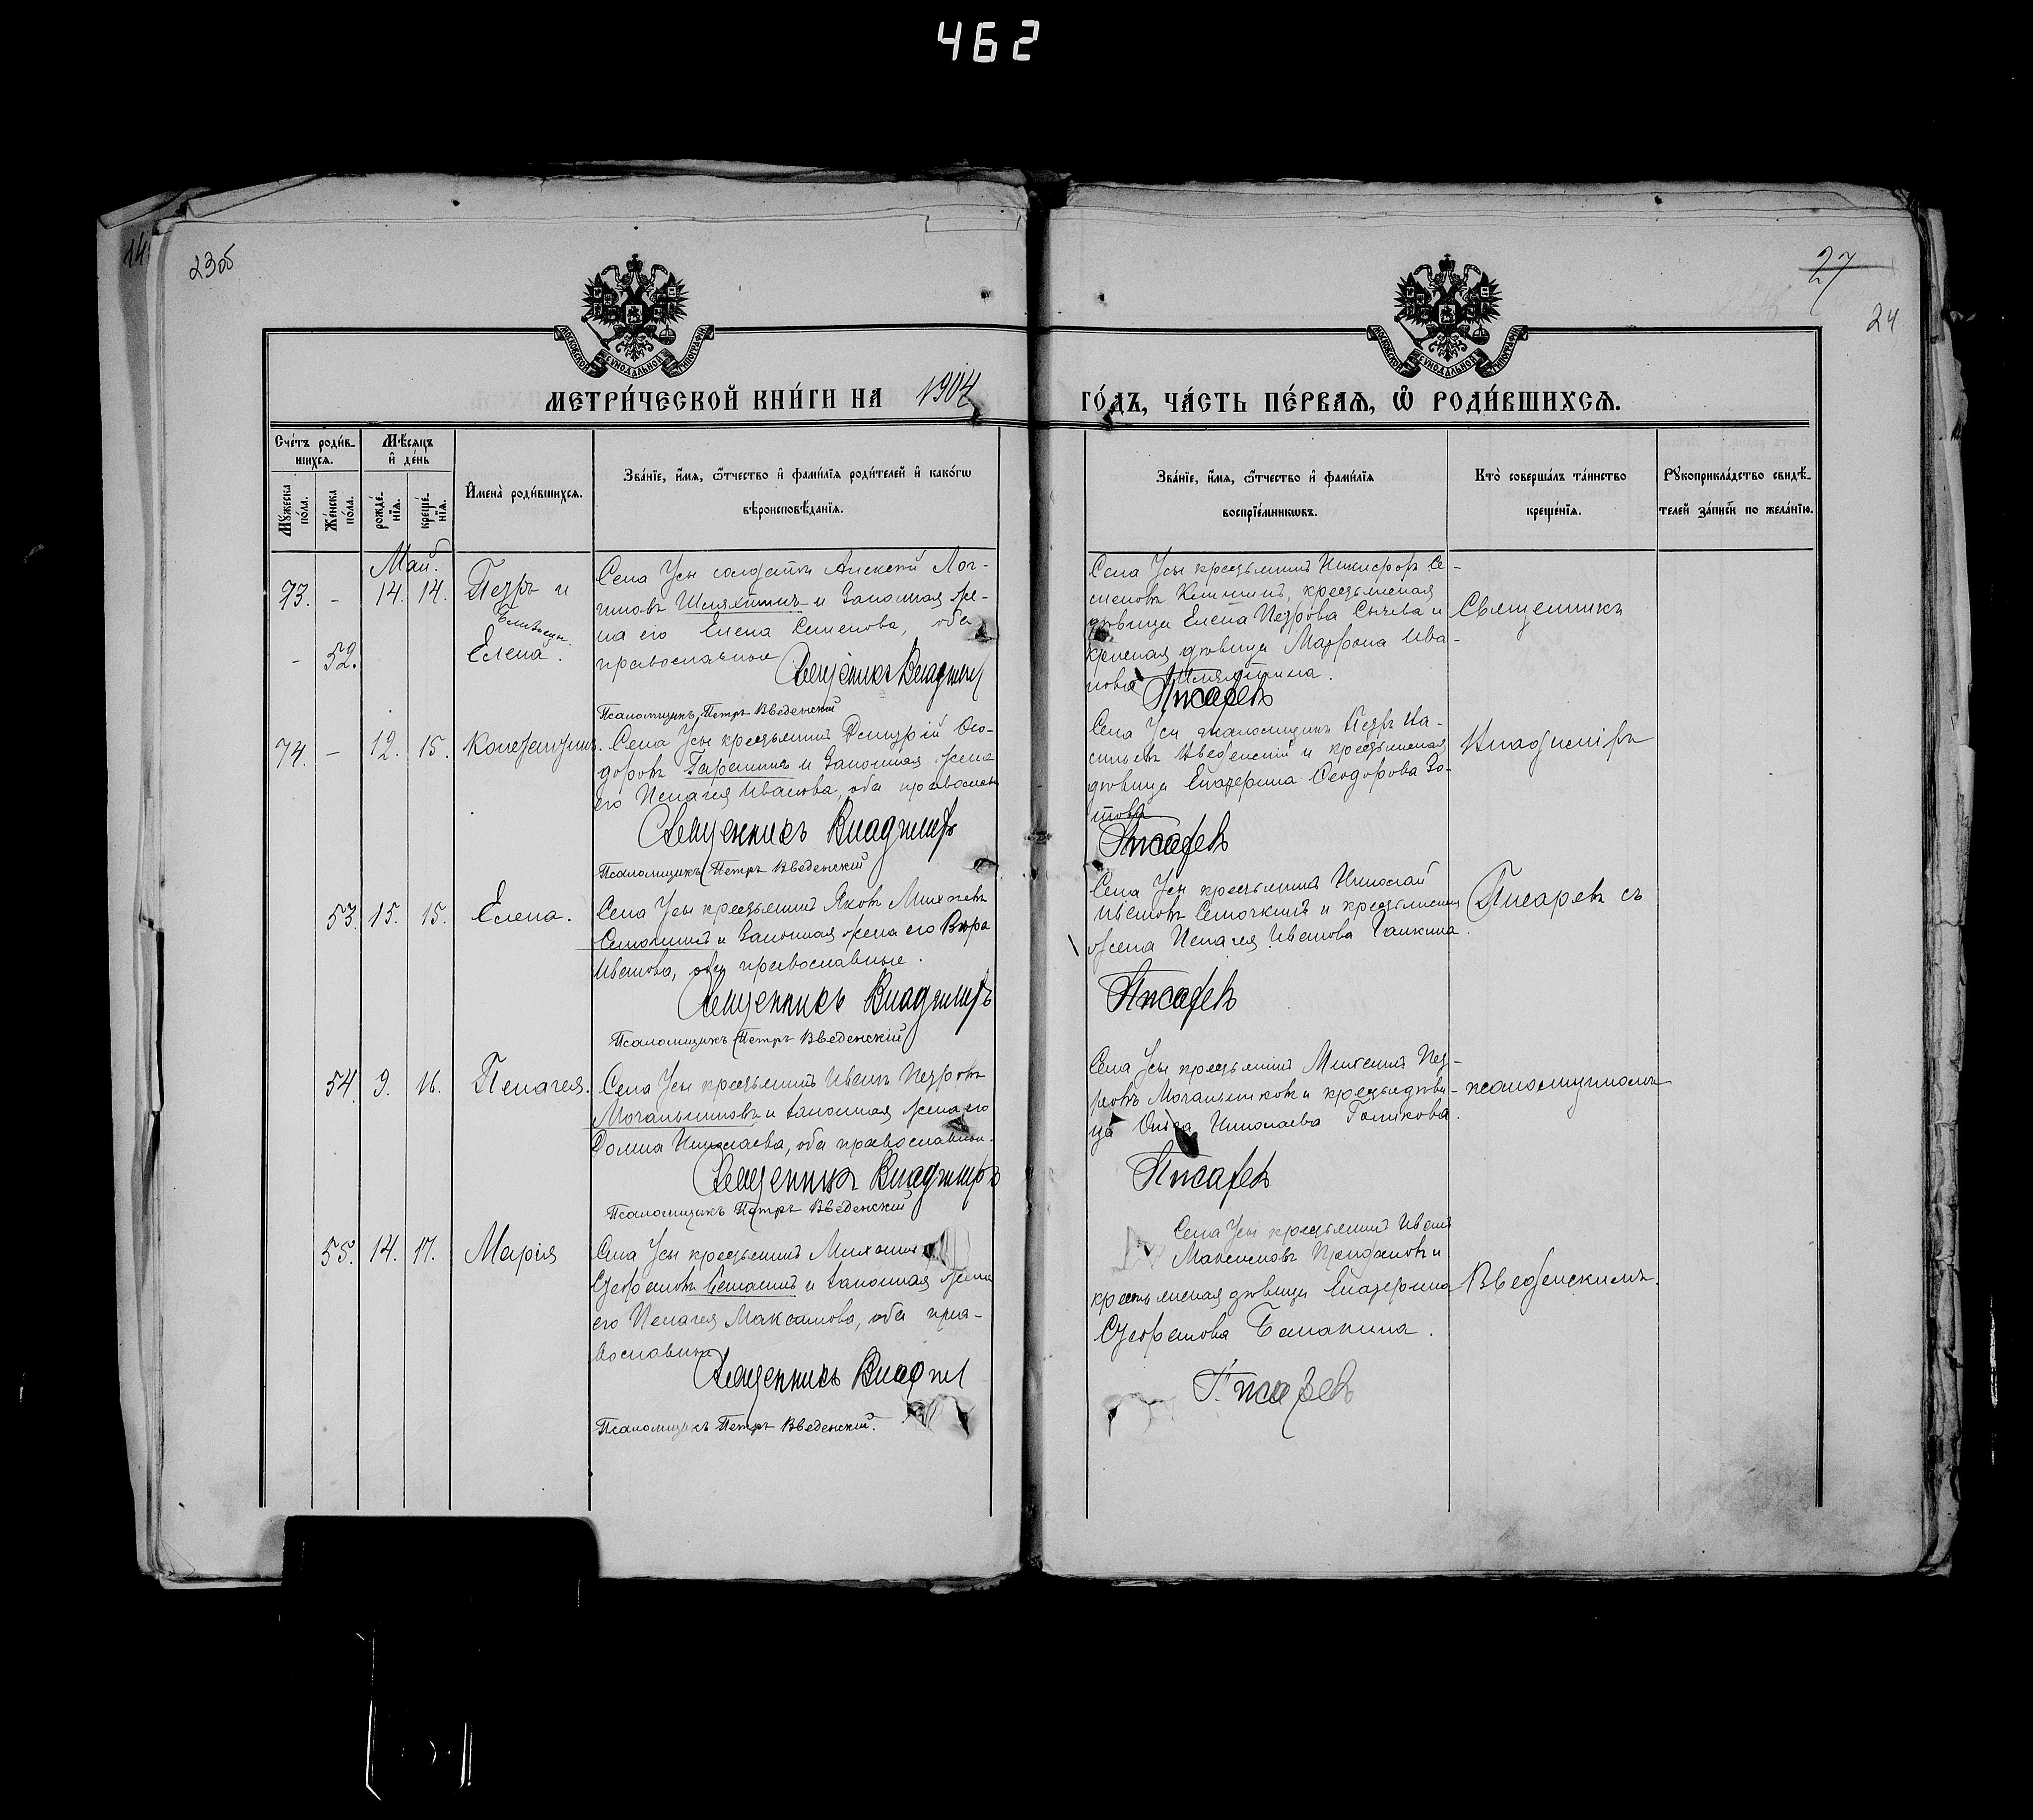 462
14
23об
27
24
МОСКОВСКОЙ СѴНОДАЛЬНОЙ ТИПОГРАФІИ
МОСКОВСКОЙ СѴНОДАЛЬНОЙ ТИПОГРАФІИ
МЕТРИ́ЧЕСКОЙ КНИ́ГИ НА 1904 ГО́ДЪ, ЧА́СТЬ ПЕ́РВАѦ, Ѡ҆ РОДИ́ВШИХСѦ.
Сче́тъ роди́в-
шихсѧ.
Мѣ́сѧцъ
и҆ де́нь
Мꙋ́жеска
по́ла.
Же́нска
по́ла.
рожде́-
нїѧ.
креще́-
нїѧ.
И҆мена̀ роди́вшихсѧ.
Зва́нїе, и҆́мѧ, ѻ҆́тчество и҆ фами́лїѧ роди́телей и҆ како́гѡ
вѣроисповѣ́данїѧ.
Зва́нїе, и҆́мѧ, ѻ҆́тчество и҆ фами́лїѧ
воспрїе́мникѡвъ.
Кто̀ соверша́лъ та́инство
креще́нїѧ.
Рꙋкоприкла́дство свидѣ́-
телей за́писи по жела́нїю.
Май.
73. - 14. 14. Петръ и
Близнецы
- 52. Елена.
Села Усы солдатъ Алексѣй Лог-
иновъ и законная же-
на его Елена Семенова, оба
православные
Священникъ Владимір
Псаломщикъ Петръ Введенскій
Села Усы крестьянинъ Никифоръ Се-
меновъ крестьянская
дѣвица Елена Петрова Сычева и
дѣвица Матрона Ива-
нова
Писаревъ
Священникъ
74. - 12. 15. Константинъ.
Села Усы крестьянинъ Димитрій Ѳео-
доровъ и законная жена
его Пелагея Иванова, оба православн
Священникъ Владиміръ
Псаломщикъ Петръ Введенскій
Села Усы псаломщикъ Петръ Ва-
сильевъ Введенскій и крестьянская
дѣвица Екатерина Ѳеодорова Зо-
това
Писаревъ
Владиміръ
53. 15. 15. Елена.
Села Усы крестьянинъ Яковъ
и законная жена его Вѣра
Иванова, оба православные.
Священникъ Владиміръ
Псаломщикъ Петръ Введенскій
Села Усы крестьянинъ Николай
Ивановъ и крестьянская
жена Пелагея Иванова Галкина.
Писаревъ
Писаревъ съ
54. 9. 16. Пелагея.
Села Усы крестьянинъ Иванъ Петровъ
и законная жена его
Домна Николаева, оба православные.
Священникъ Владиміръ
Псаломщикъ Петръ Введенскій
Села Усы крестьянинъ Пет-
ровъ и крестьян дѣви-
ца Ольга Николаева Голикова.
Писаревъ
псаломщикомъ
55. 14. 17. Марія
Села Усы крестьянинъ Михаилъ
и законная жена
его Пелагея Максимова, оба пра-
вославные
Священникъ Владим
Псаломщикъ Петръ Введенскій.
Села Усы крестьянинъ Иванъ
Максимовъ и
крестьянская дѣвица Екатерина
Писаревъ
Введенскимъ.